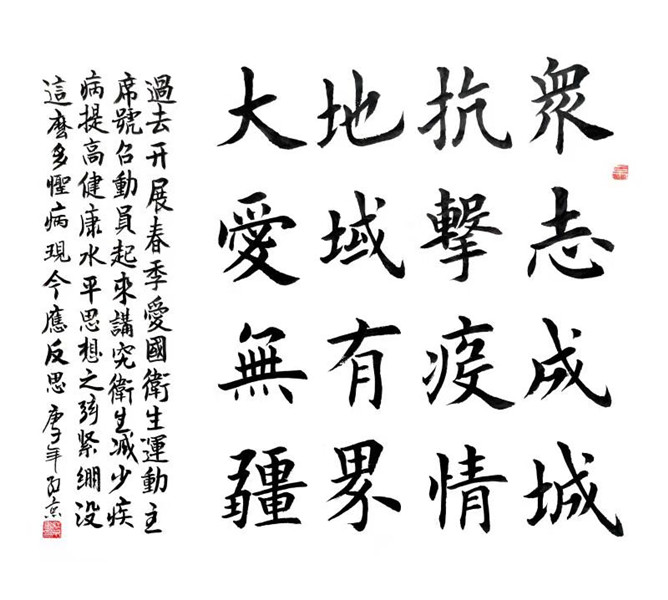 衆志成城
抗擊疫情
地域有界
大愛無疆
過去开展春季愛國衛生運動主
席號召動員起來講究衛生减少疾
病提高健康水平思想之弦緊綳没
這麼多怪病現今應反思 庚子年